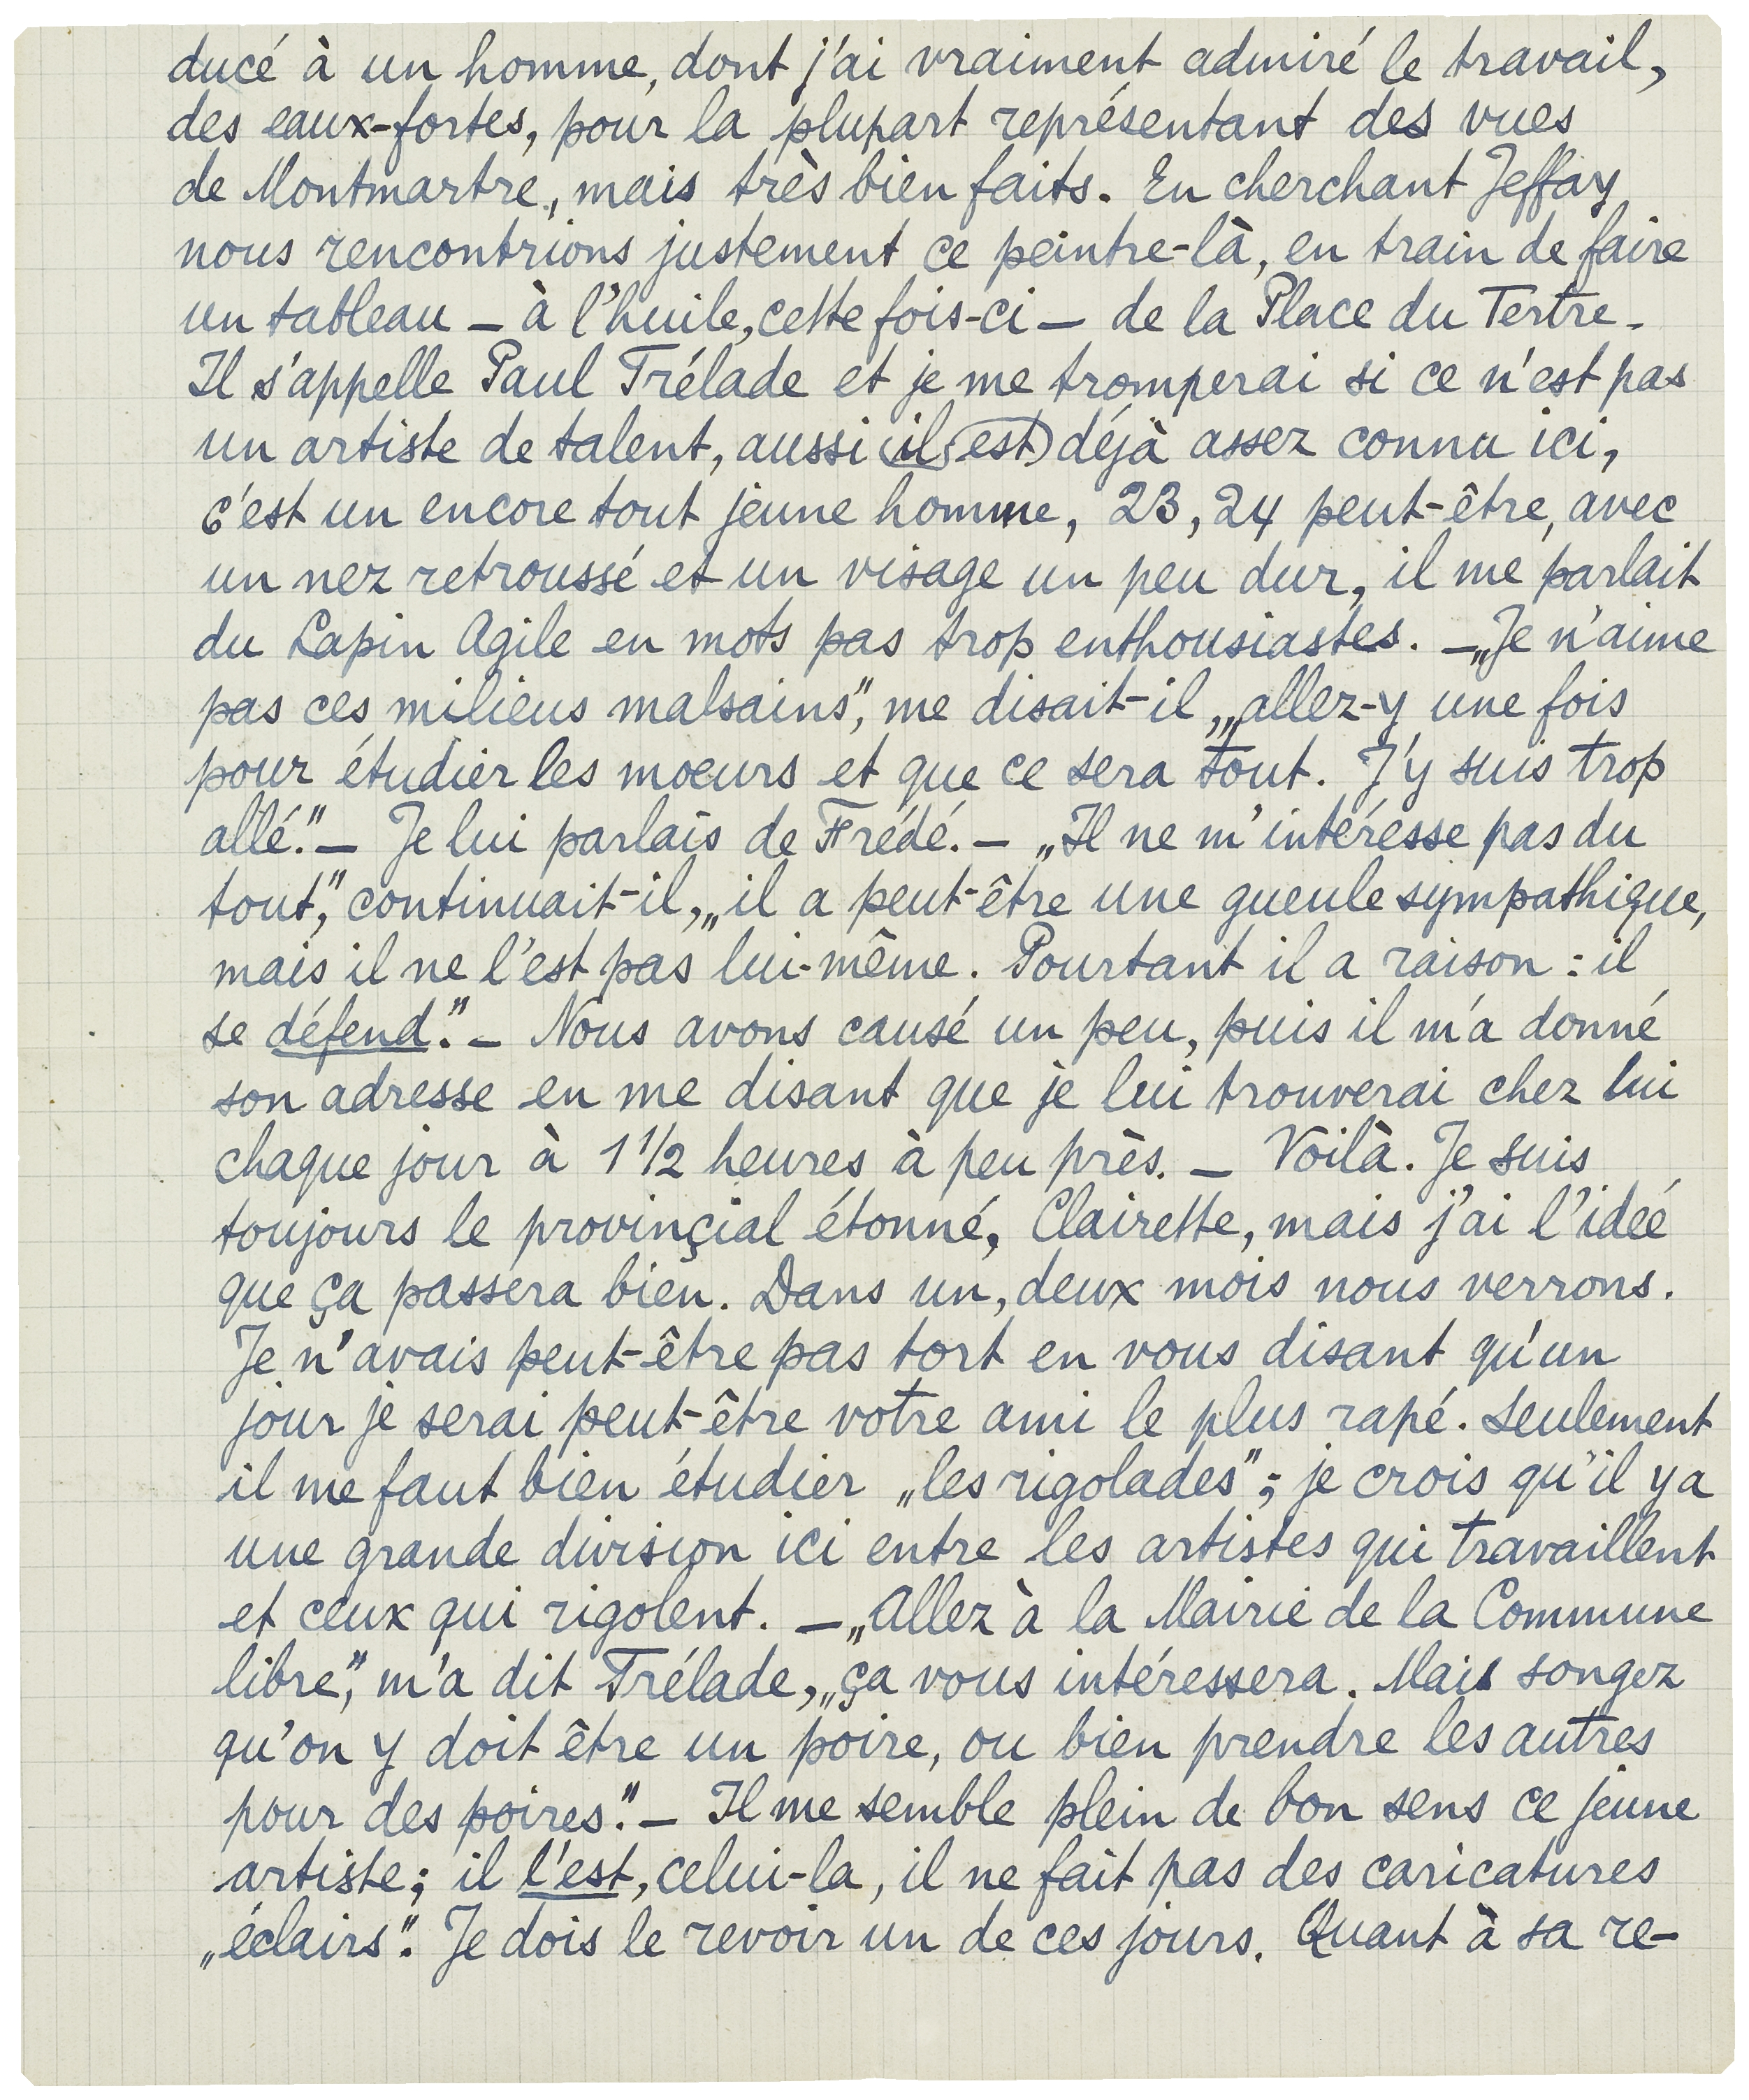 ducé à un homme, dont j'ai vraiment admiré le travail,
des eaux-fortes, pour la plupart représentant des vues
de Montmartre, mais très bien faits. En cherchant Jeffay
nous rencontrions justement ce peintre-là, en train de faire
un tableau – à l'huile, cette fois-ci – de la Place du Tertre.
Il s'appelle Paul Trélade et je me tromperai si ce n'est pas
un artiste de talent, aussi il est déjà assez connu ici,
c'est un encore tout jeune homme, 23, 24 peut-être, avec
un nez retroussé et un visage un peu dur, il me parlait
du Lapin Agile en mots pas trop enthousiastes. – „Je n'aime
pas ces milieus malsains", me disait-il, „allez-y une fois
pour étudier les moeurs et que ce sera tout. J'y suis trop
allé." – Je lui parlais de Frédé. – „Il ne m'intéresse pas du
tout," continuait-il, „il a peut-être une gueule sympathique,
mais il ne l'est pas lui-même. Pourtant il a raison : il
se défend." – Nous avons causé un peu, puis il m'a donné
son adresse en me disant que je lui trouverai chez lui
chaque jour à 1 1/2 heures à peu près. – Voilà. Je suis
toujours le provinçial étonné, Clairette, mais j'ai l'ideé
que ça passera bien. Dans un, deux mois nous verrons.
Je n'avais peut-être pas tort en vous disant qu'un
jour je serai peut-être votre ami le plus rapé. Seulement
il me faut bien étudier „les rigolades"; je crois qu'il y a
une grande division ici entre les artistes qui travaillent
et ceux qui rigolent. – „Allez à la Mairie de la Commune
libre," m'a dit Trélade, „ça vous intéressera. Mais songez
qu'on y doit être un poire, ou bien prendre les autres
pour des poires." – Il me semble plein de bon sens ce jeune
artiste; il l'est, celui-la, il ne fait pas des caricatures
„éclairs". Je dois le revoir un de ces jours. Quant à sa re-